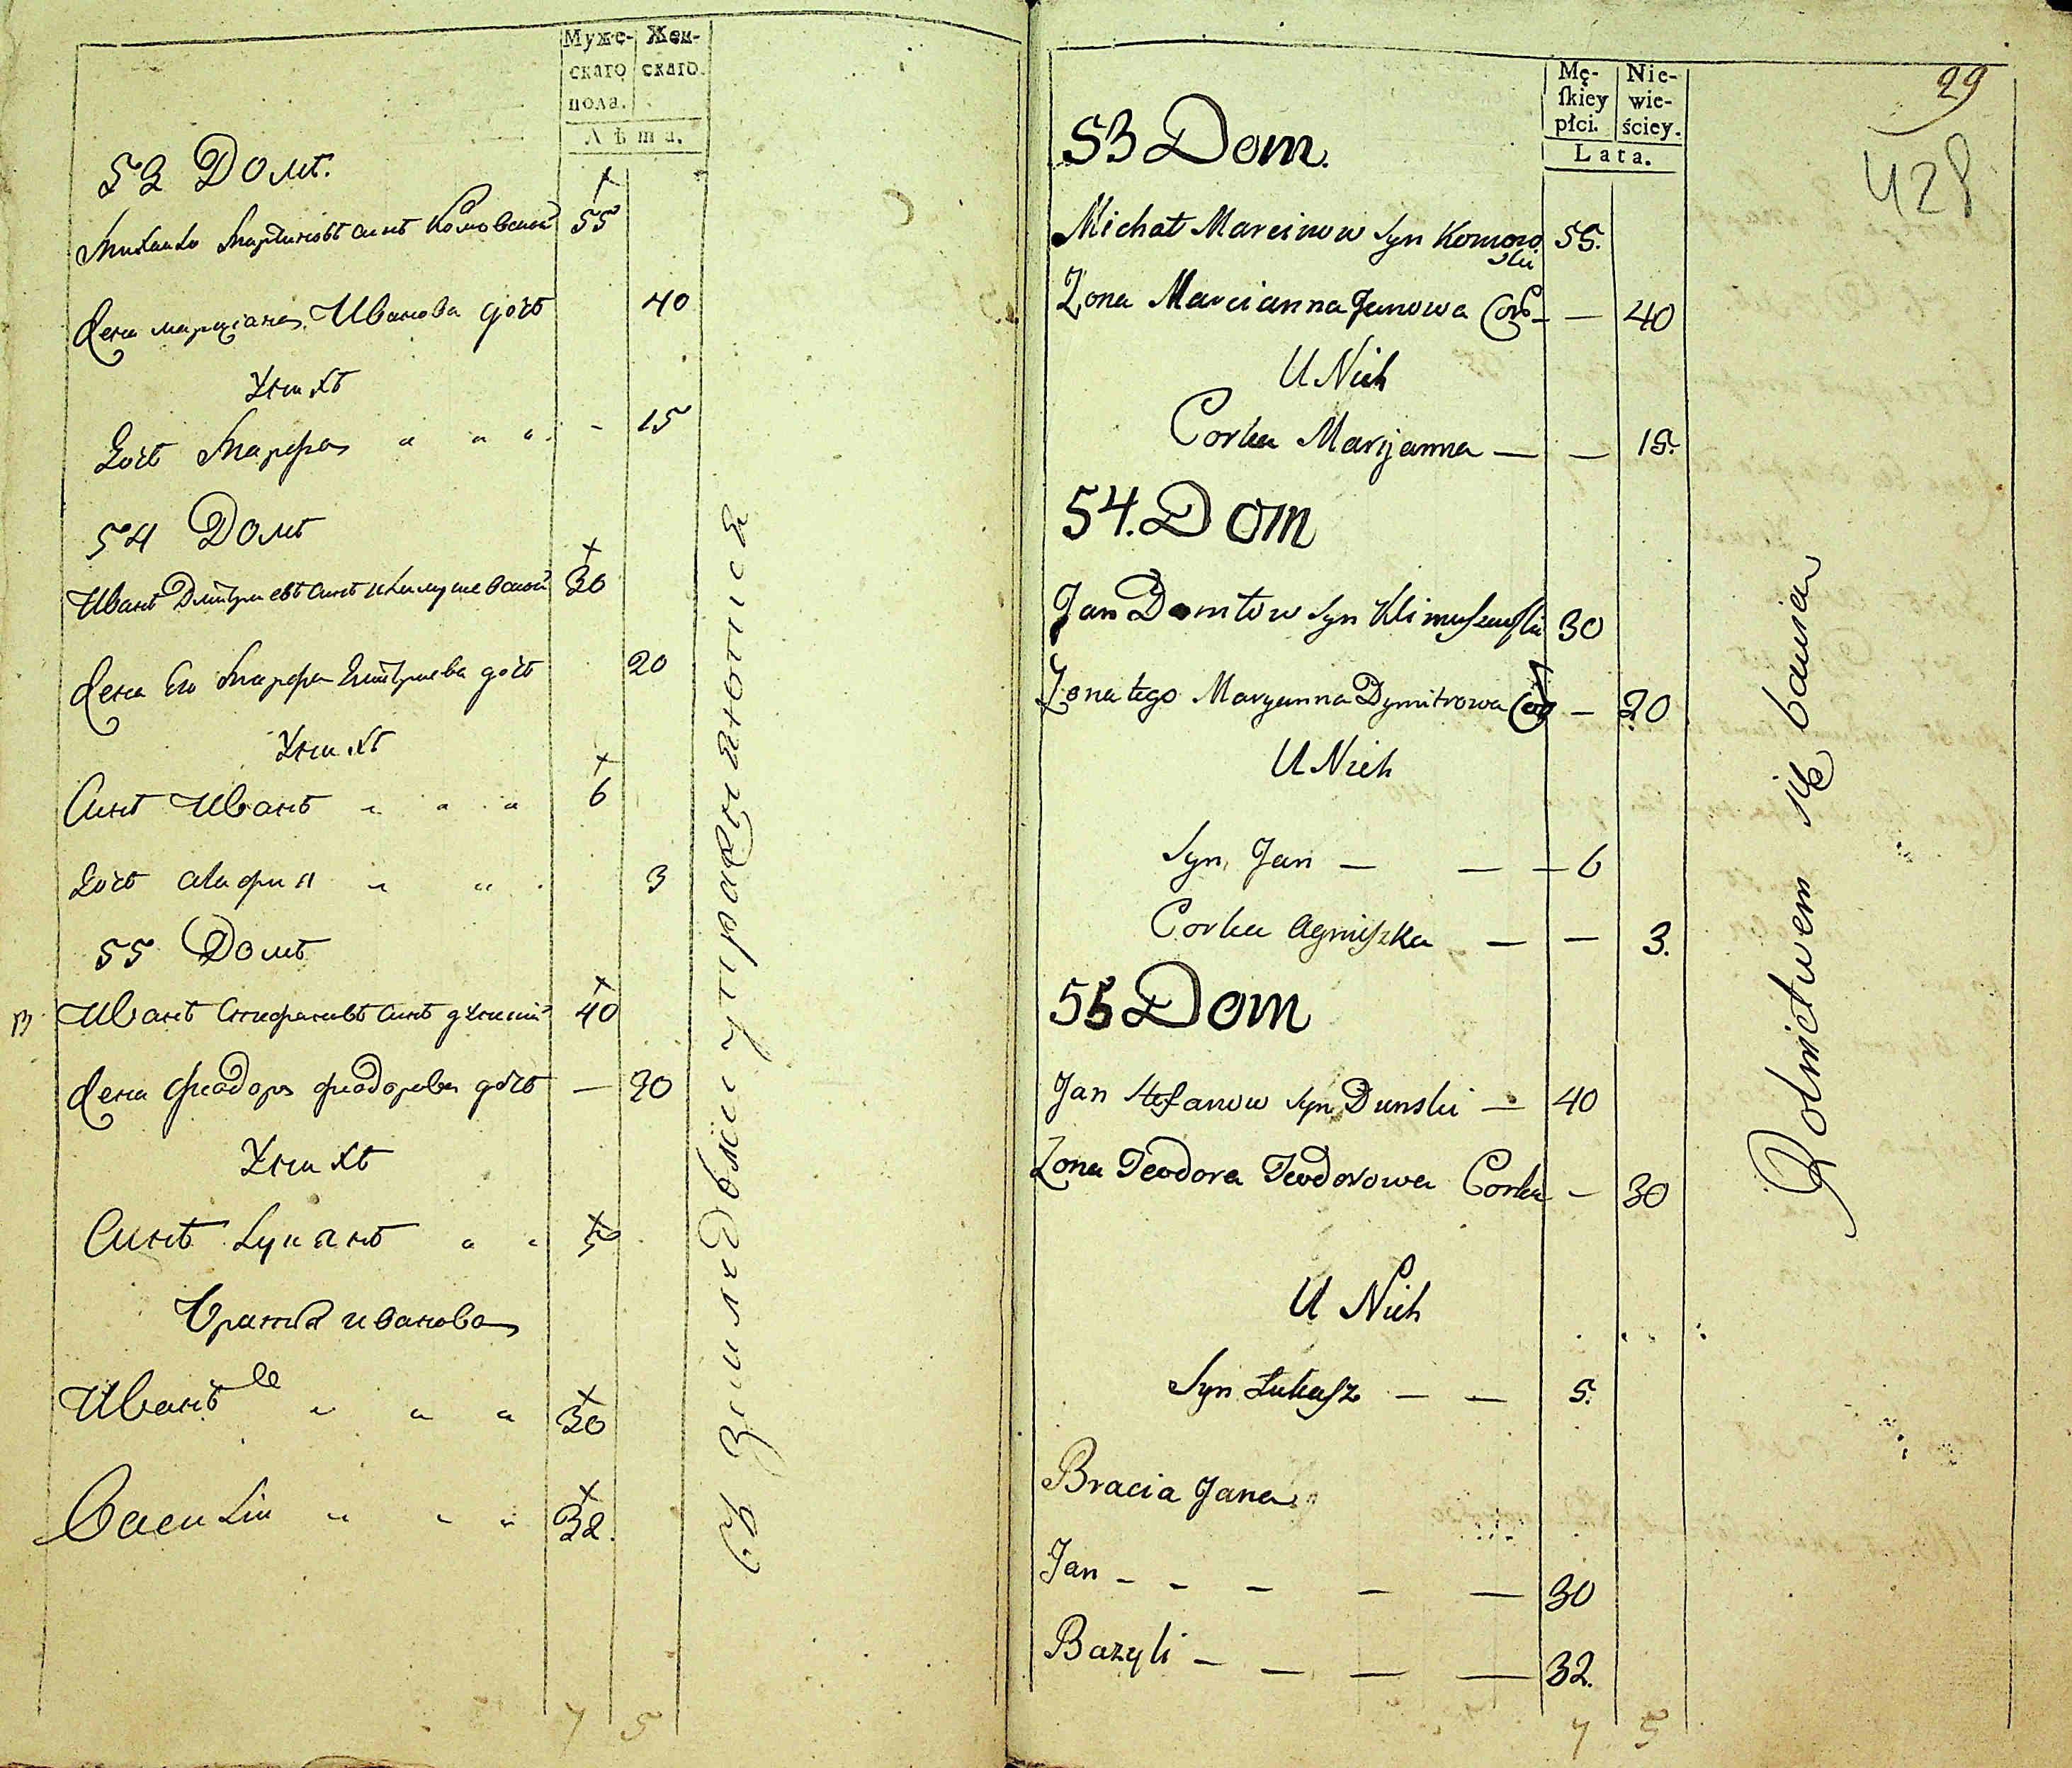 Муже- Жен-
скаго скаго.
пола.
Лѣта.
53 Домъ.
Михайло Мартиновъ синъ Комовской 55
Жена марціана Иванова дочь 40
У них
Дочь Марфа " " " - 15
54 Домъ
Иванъ Дмитриевъ синъ Климушевской 30
Жена Его Марфа Дмитриева дочь 20
У них
Синъ Иванъ " " " 6
Дочь Агафия " " 3
55 Домъ
Иванъ Стефановъ синъ дунский 40
Жена Феодора Феодорова дочь — 30
У них
Синъ Лукянъ " " 5
братья иванова
Иванъ же " " " 30
Василий " " " 32.
7 5
земледелии упражняются
29
428
Mę- Nie-
ſkiey wie-
płci. ściey.
Lata.
53 Dom.
Michał Marcinow Syn Komow 55.
ski
Żona Marcianna Janowa Cor - — 40
U Nich
Corka Maryanna — — 15.
54. Dom
Jan Domtow Syn Klimuſzewſki 30
Żona tego Maryanna Dymitrowa Cor — 20
U Nich
Syn Jan — — — 6
Corka Agniſzka — — 3.
55 Dom
Jan Stefanow Syn Dunski — 40
Żona Teodora Teodorowa Corka - 30
U Nich
Syn Łukaſz — — 5.
Bracia Jana
Jan - - — — — 30
Bazyli - — — — 32.
7 5
Rolnictwem się bawią